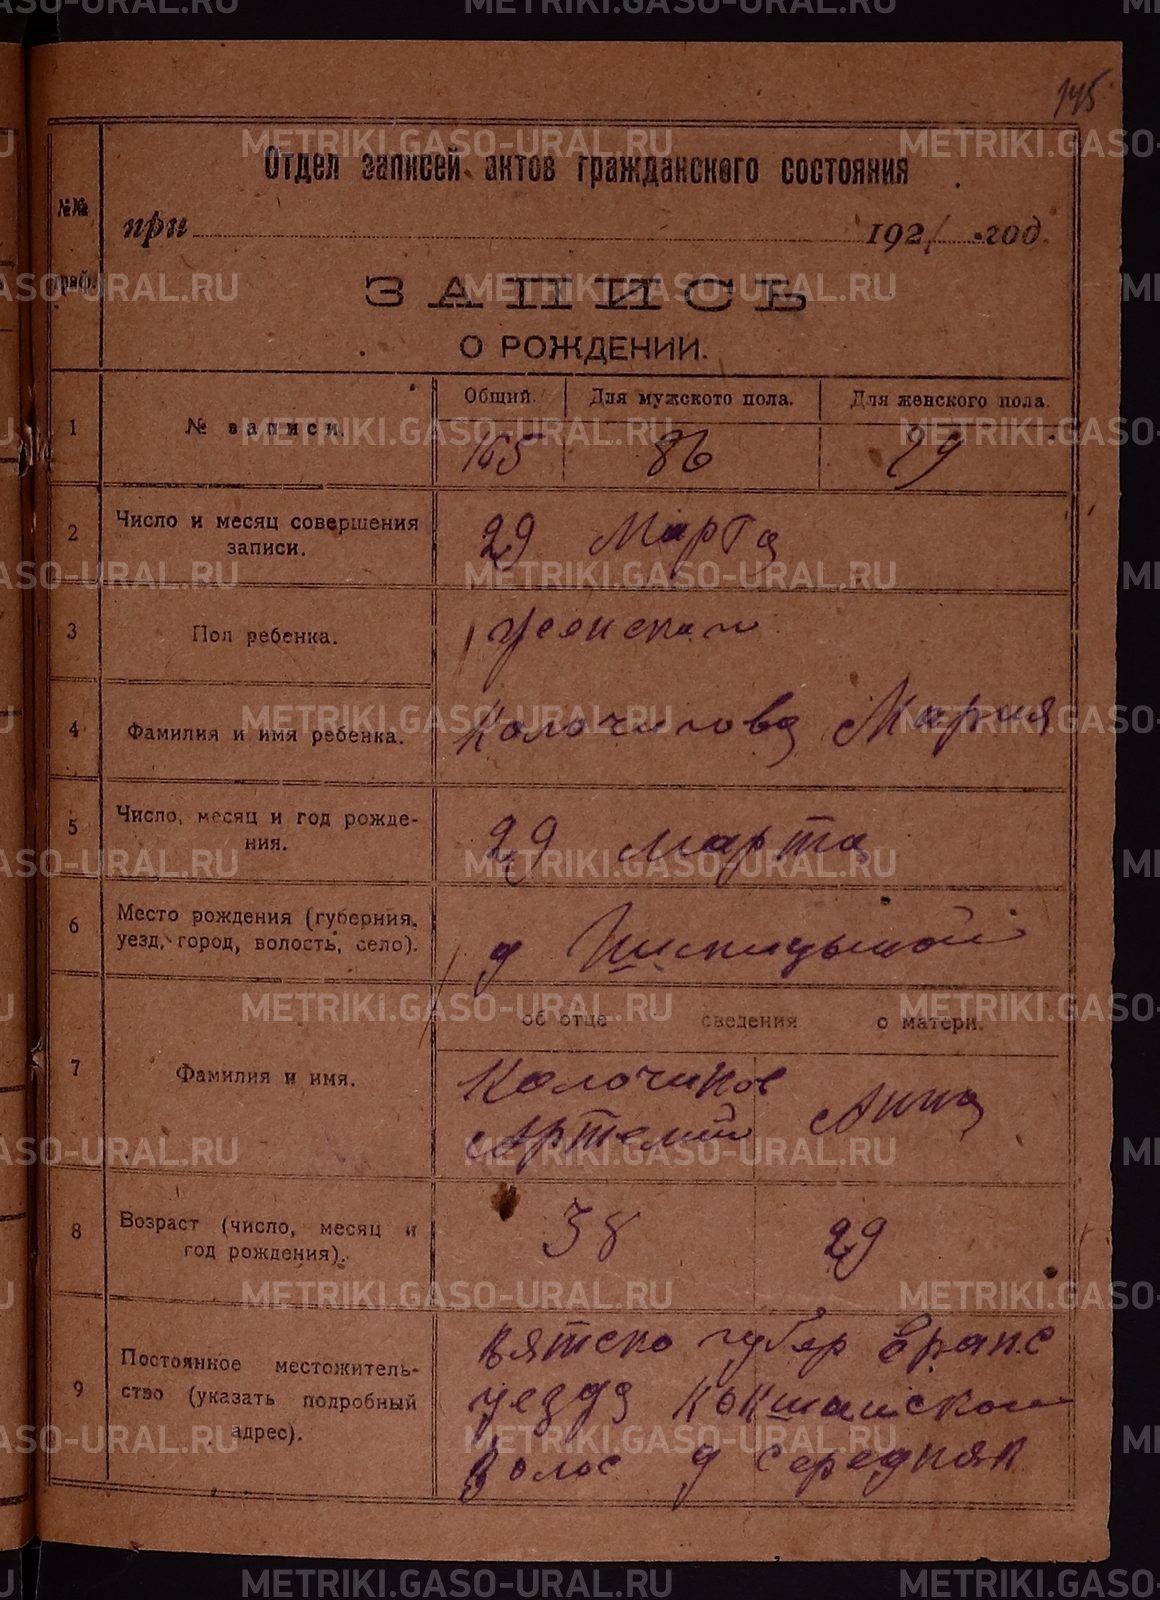 145
Отдел записей актов гражданского состояния
№№ граф.
при 1921 год
ЗАПИСЬ
О РОЖДЕНИИ.
1 № записи. Общий. Для мужского пола. Для женского пола.
86
2 Число и месяц совершения записи. 29 Марта
3 Пол ребенка. женской
4 Фамилия и имя ребенка. Колочикова Мария
5 Число, месяц и год рождения. 29 марта
6 Место рождения (губерния, уезд, город, волость, село). д
об отце сведения о матери.
7 Фамилия и имя. Колочиков Артемий Анна
8 Возраст (число, месяц и год рождения). 38 29
9 Постоянное местожительство (указать подробный адрес). Вятско губер Яранс
уезда Кокшайской
Волос д Середняк
METRIKI.GASO-URAL.RU